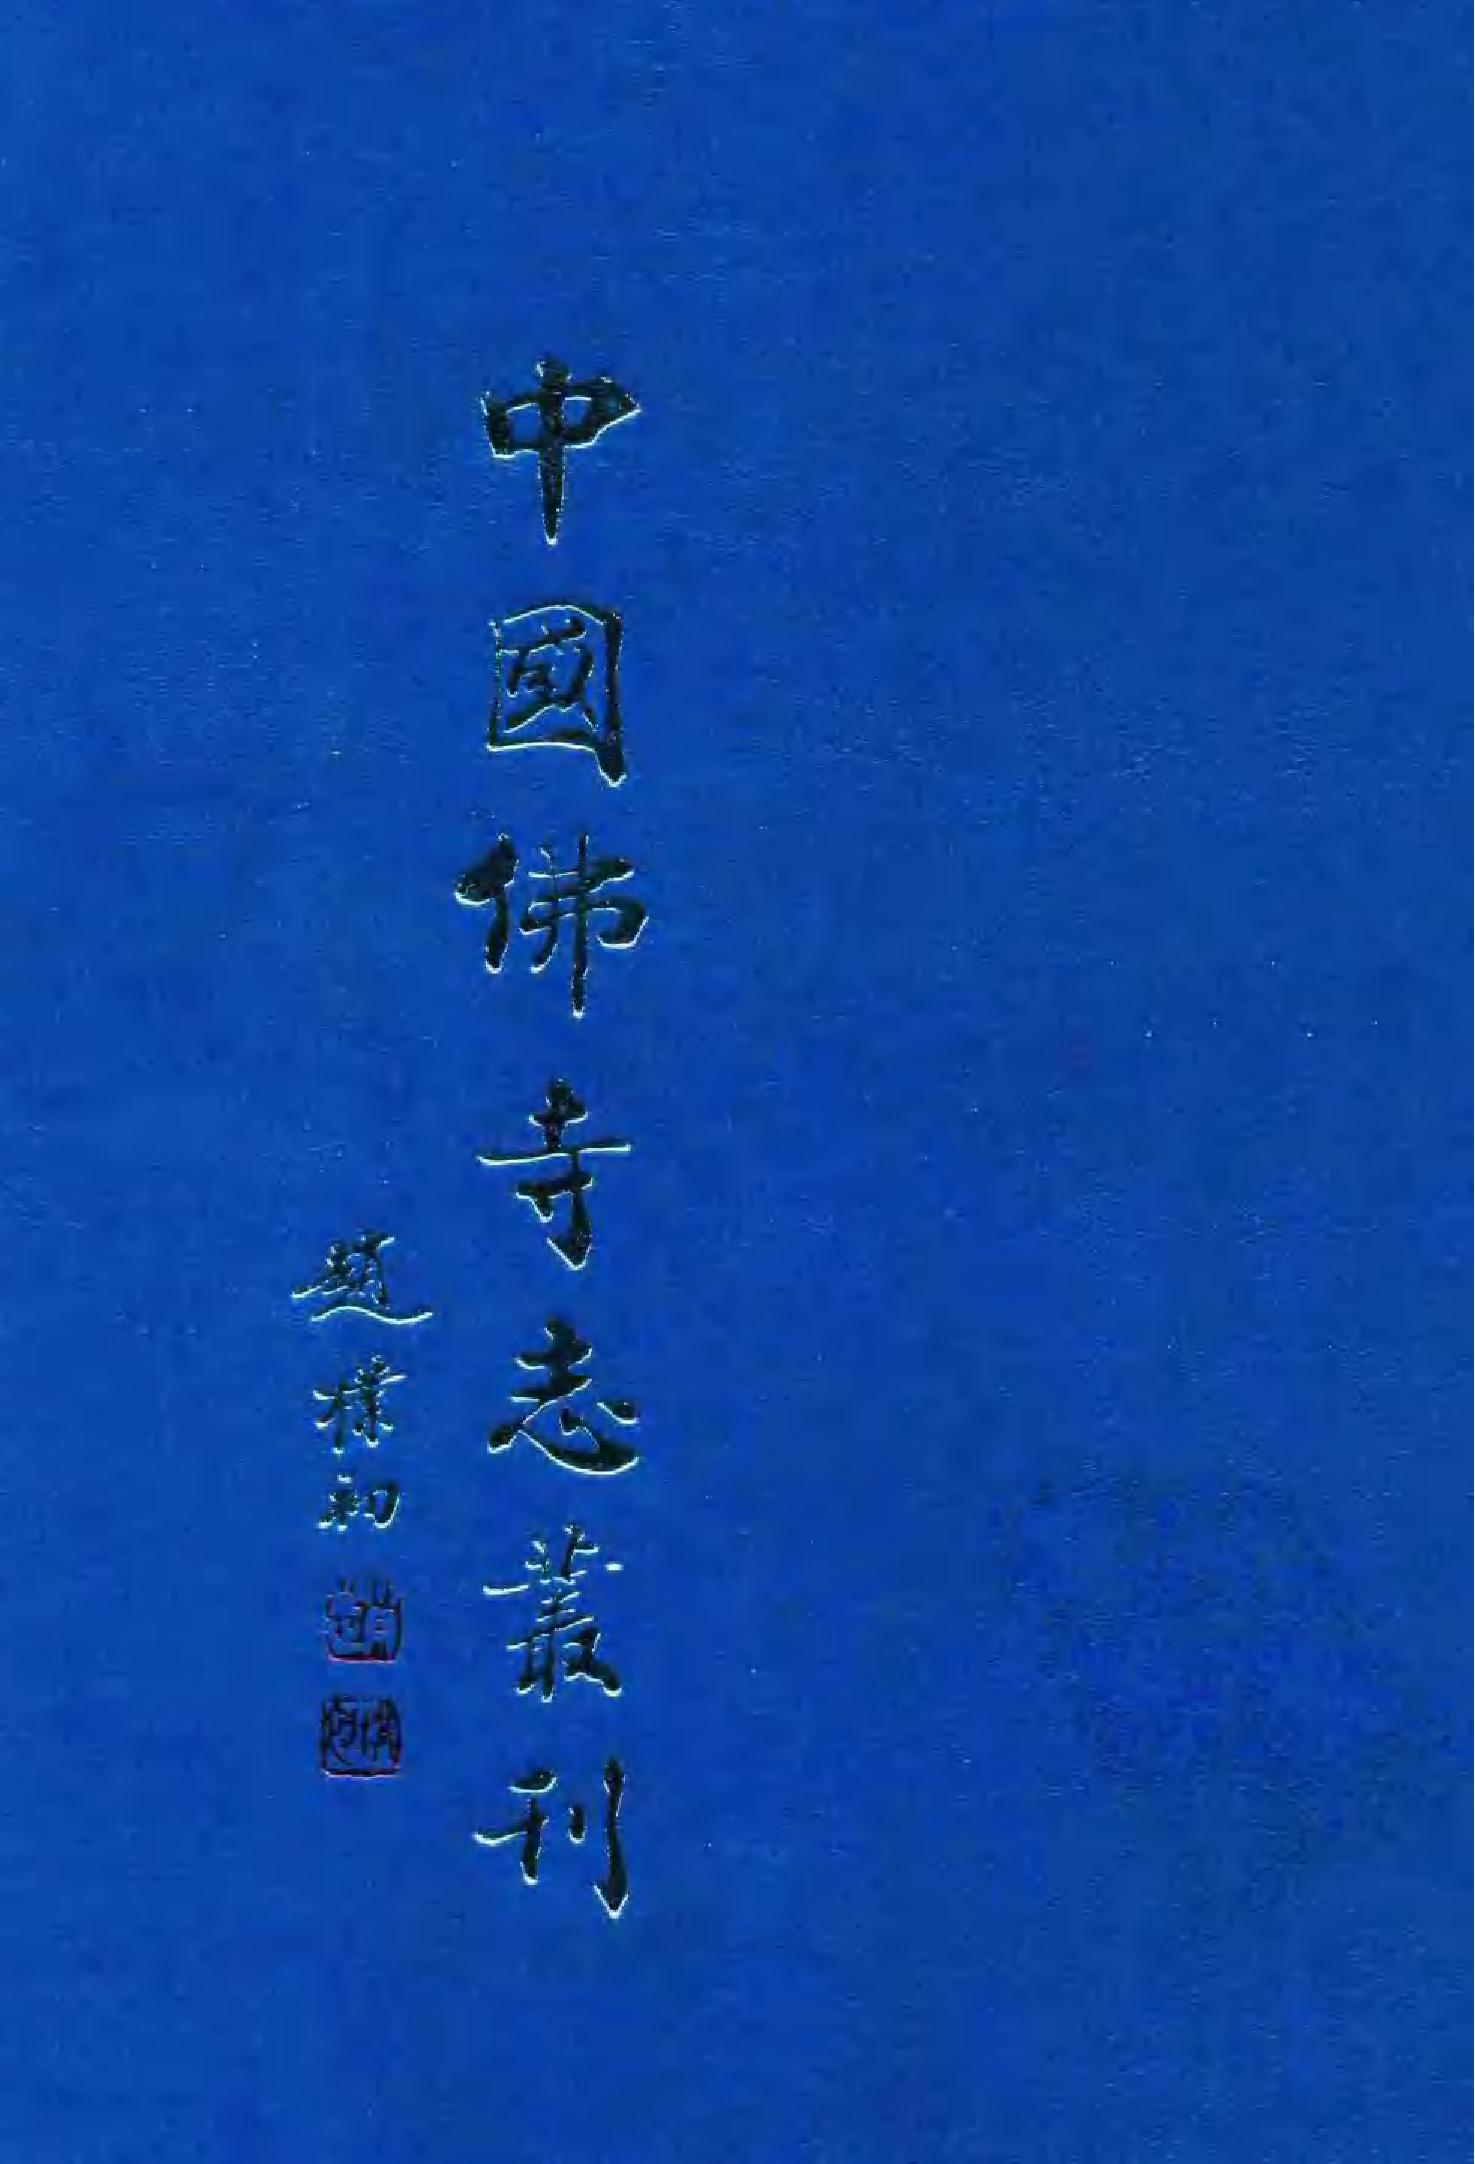 中國佛寺志叢刊
趙樸初